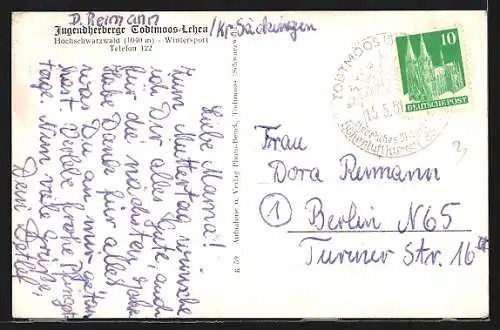 D. Reimann
Jugendherberge Todtmoos-Lehen /Kr. Säckingen
Hochschwarzwald (1040 m) - Wintersport
Telefon 122
Liebe Mama!
Zum Muttertag wünsche
ich Dir alles Gute, auch
für die nächsten Jahre
Habe Dank für alles
was Du an mir getan
hast. Frohe Pfingst-
tage. Nun viele Grüße,
Dein Detlef
K 59 Aufnahme u. Verlag Photo- Todtmoos (Schwarzwald)
TODTMOOS
15.5.
Höhenluftkurort
10
DEUTSCHE POST
Frau
Dora Reimann
1 Berlin N65
Turiner Str. 16